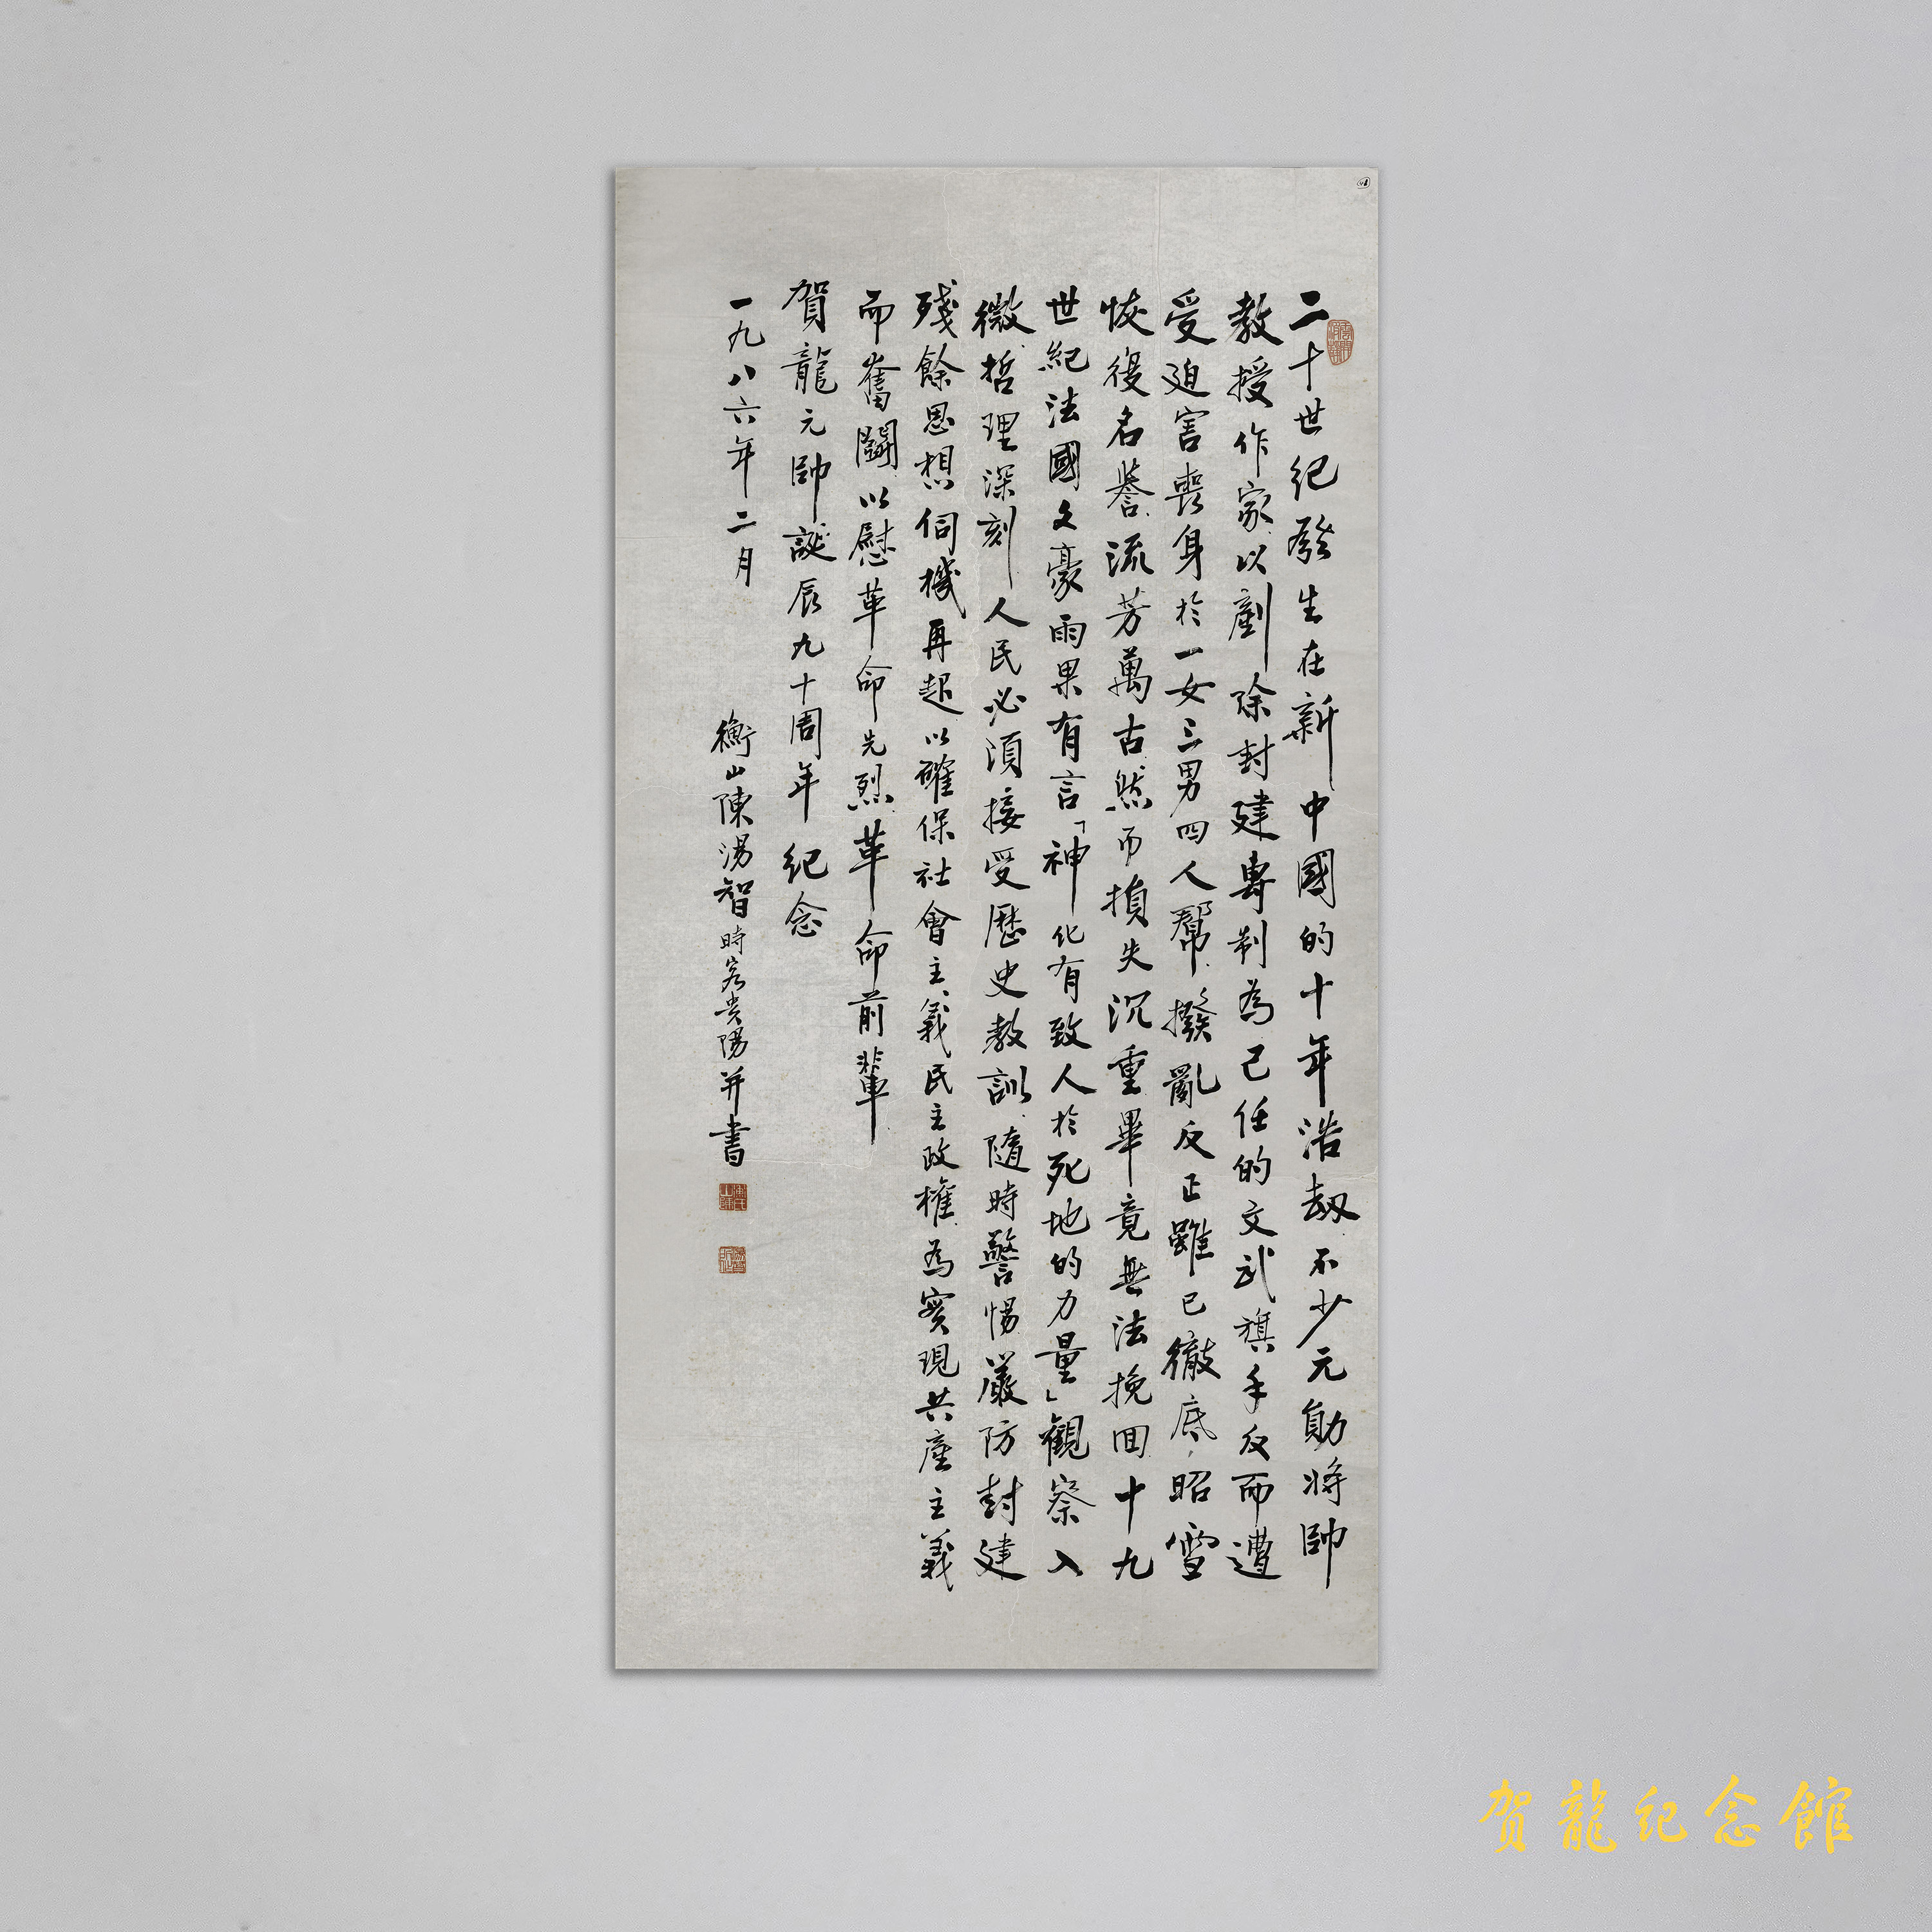 二十世紀發生在新中國的十年浩劫不少元勛將帥
教授作家以剷除封建專制為己任的文武旗手反而遭
受迫害喪身於一女三男四人幫撥亂反正雖已徹底昭雪
恢復名譽流芳萬古然而損失沉重畢竟無法挽回十九
世紀法國文豪雨果有言「神化有致人於死地的力量」觀察入
微哲理深刻人民必須接受歷史教訓隨時警惕嚴防封建
殘餘思想伺機再起以確保社會主義民主政權為實現共產主義
而奮鬪以慰革命先烈革命前輩
賀龍元帥誕辰九十周年紀念
一九八六年二月
衡山陳湯智時客贵陽并書
贺龍纪念館